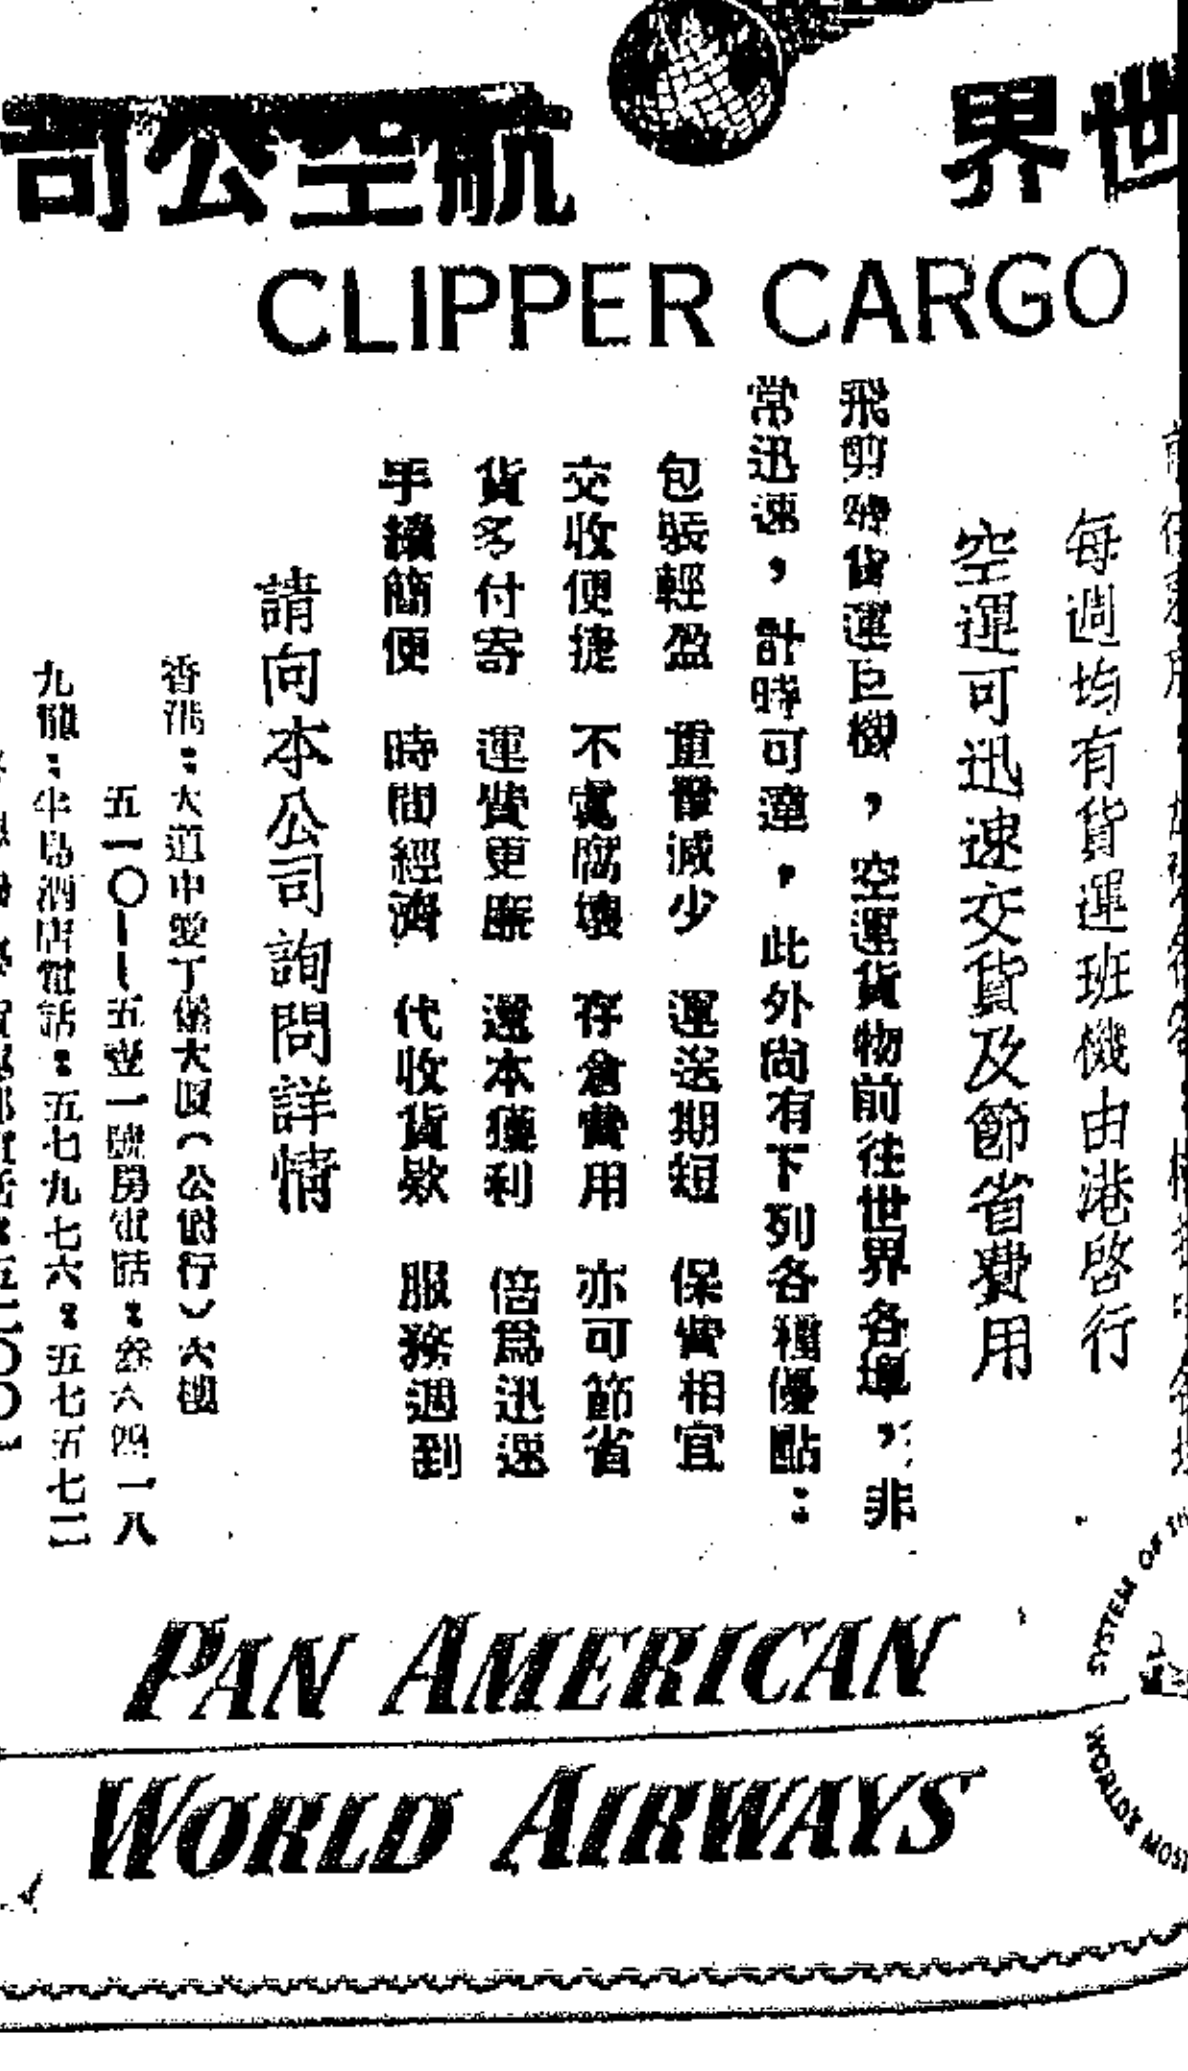 世界航空公司
CLIPPER CARGO
每週均有貨運班機由港啓行
空運可迅速交貨及節省費用
飛剪號貨運巨機，空運貨物前往世界各埠，非
常迅速，計時可達，此外尚有下列各種優點：
包裝輕盈 重量減少 運送期短 保費相宜
交收便捷 不虞腐壞 存倉費用 亦可節省
貨多付寄 運費更廉 還本獲利 倍爲迅速
手續簡便 時間經濟 代收貨欵 服務週到
請向本公司詢問詳情
香港：大道中愛丁堡大厦（公爵行）六樓
五一〇——五壹一號房電話：叁六四一八
九龍：半島酒店電話：五七九七六：五七五七二
PAN AMERICAN
WORLD AIRWAYS
SYSTEM OF
WORLD'S MOST